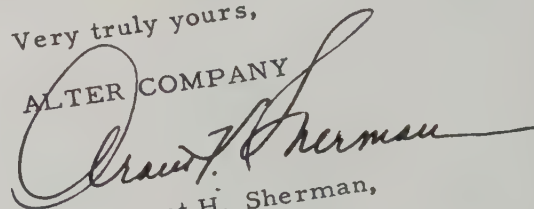 Very truly yours,
ALTER COMPANY
Sherman
H. Sherman,